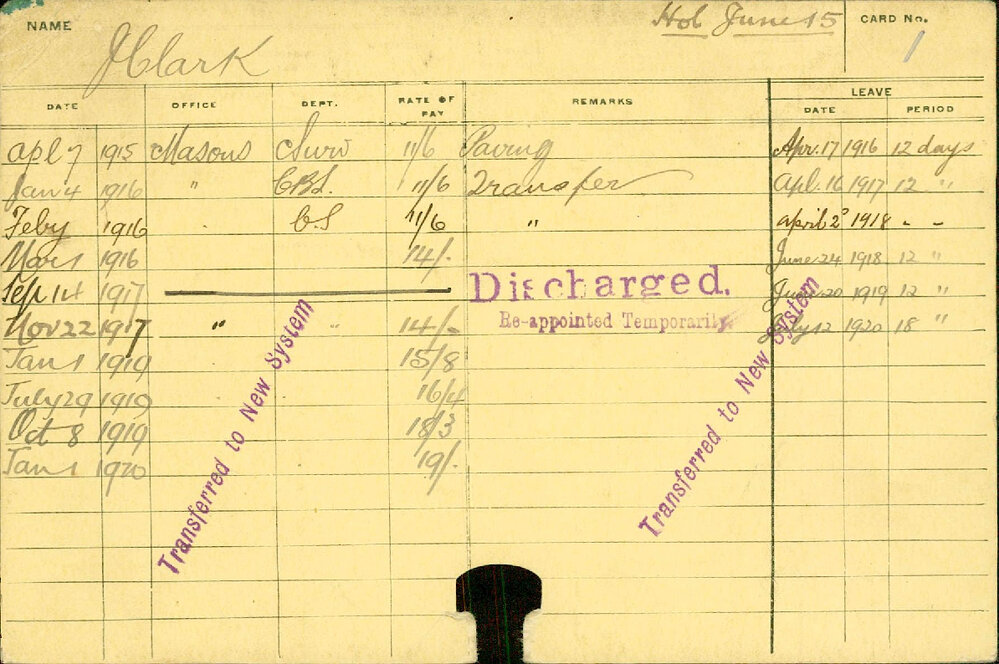 NAME J Clark Hol June 15 CARD No. 1
LEAVE
DATE OFFICE DEPT. RATE OF PAY REMARKS DATE PERIOD
Apl 7 1915 Masons Surv 11/6 Paving Apr. 17 1916 12 days
Jan 4 1916 " CBS. 11/6 Transfer Apl. 16 1917 12 "
Feby 1916 C.S 11/6 " april 2 1918 - -
Mar 1 1916 14/- June 24 1918 12 "
Sep 14 1917 Discharged. 20 1919 12 "
Nov 22 1917 " " 14/- Re-appointed Temporarily. July 12 1920 18 "
Jan 1 1919 15/8
July 29 1919 16/4
Oct 8 1919 18/3
Jan 1 1920 19/-
Transferred to New System
Transferred to New System